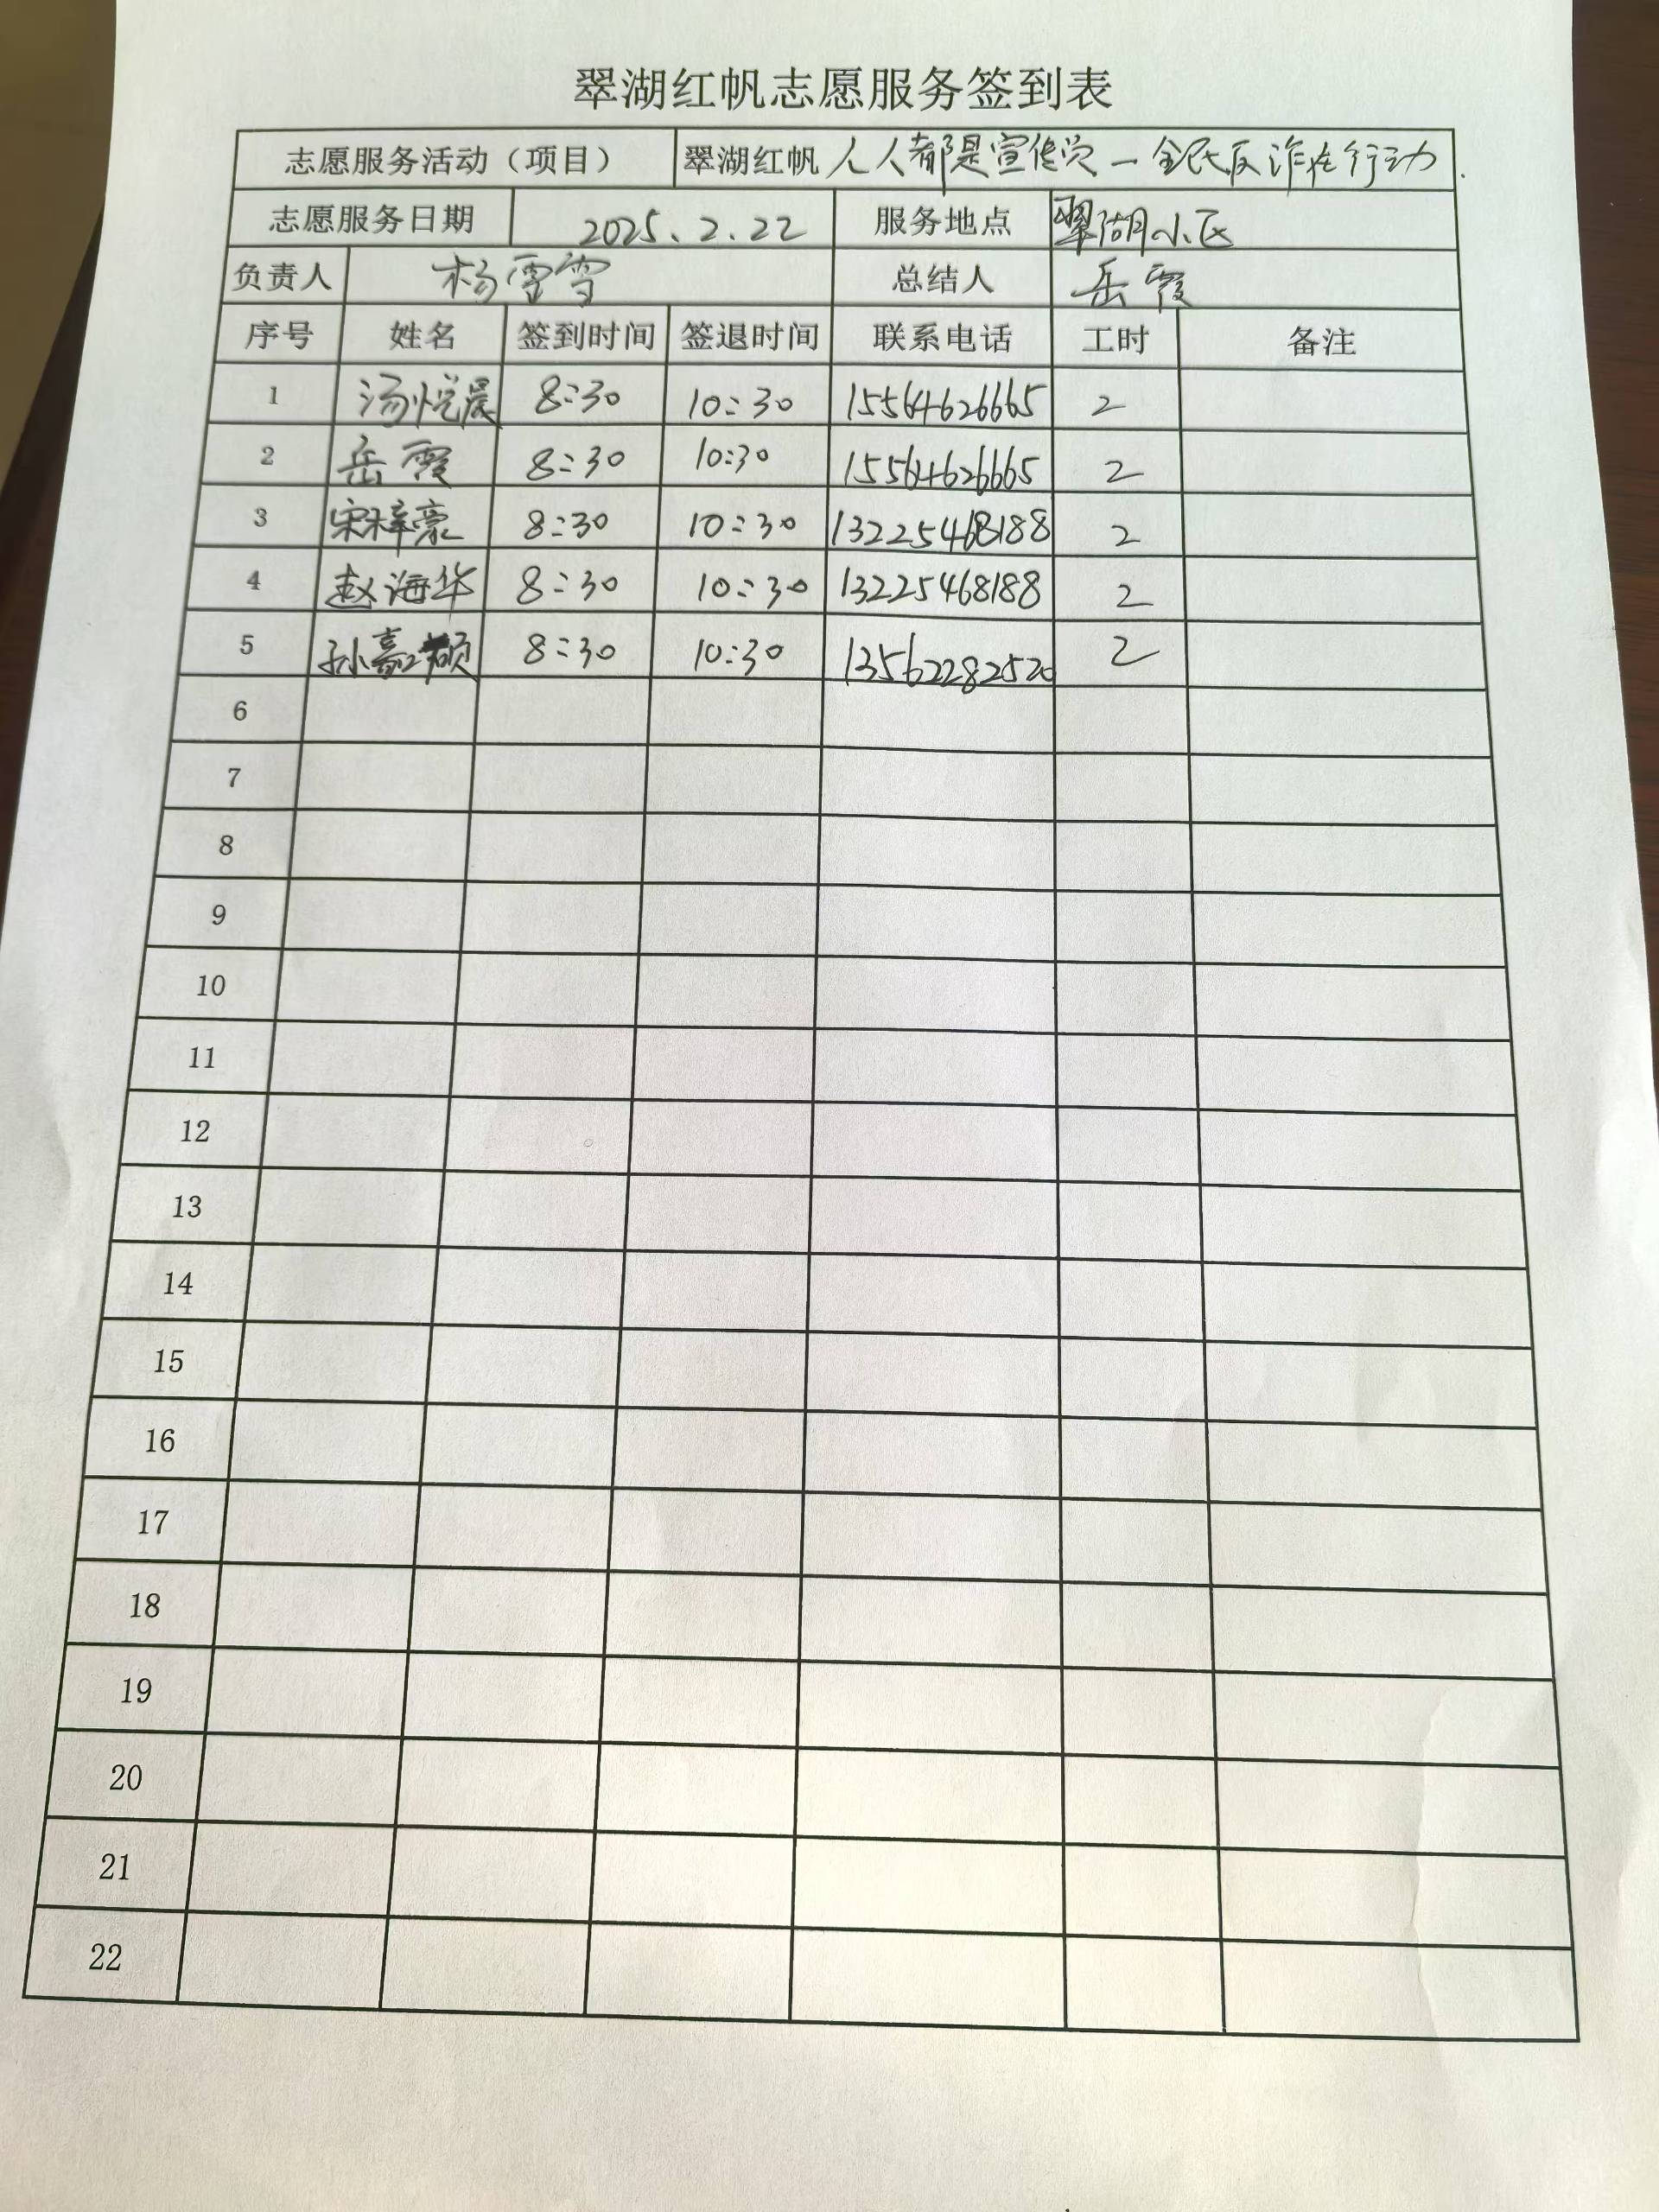 翠湖红帆志愿服务签到表
志愿服务活动（项目） 翠湖红帆 人人都是宣传员一全民反诈在行动.
志愿服务日期 2025.2.22 服务地点 翠湖小区
负责人 杨雪雪 总结人 岳霞
序号 姓名 签到时间 签退时间 联系电话 工时 备注
1 汤悦晨 8:30 10:30 15564626665 2
2 岳霞 8:30 10:30 15564626665 2
3 宋梓豪 8:30 10:30 13225468188 2
4 赵海华 8:30 10:30 13225468188 2
5 孙嘉颖 8:30 10:30 13562282520 2
6
7
8
9
10
11
12
13
14
15
16
17
18
19
20
21
22